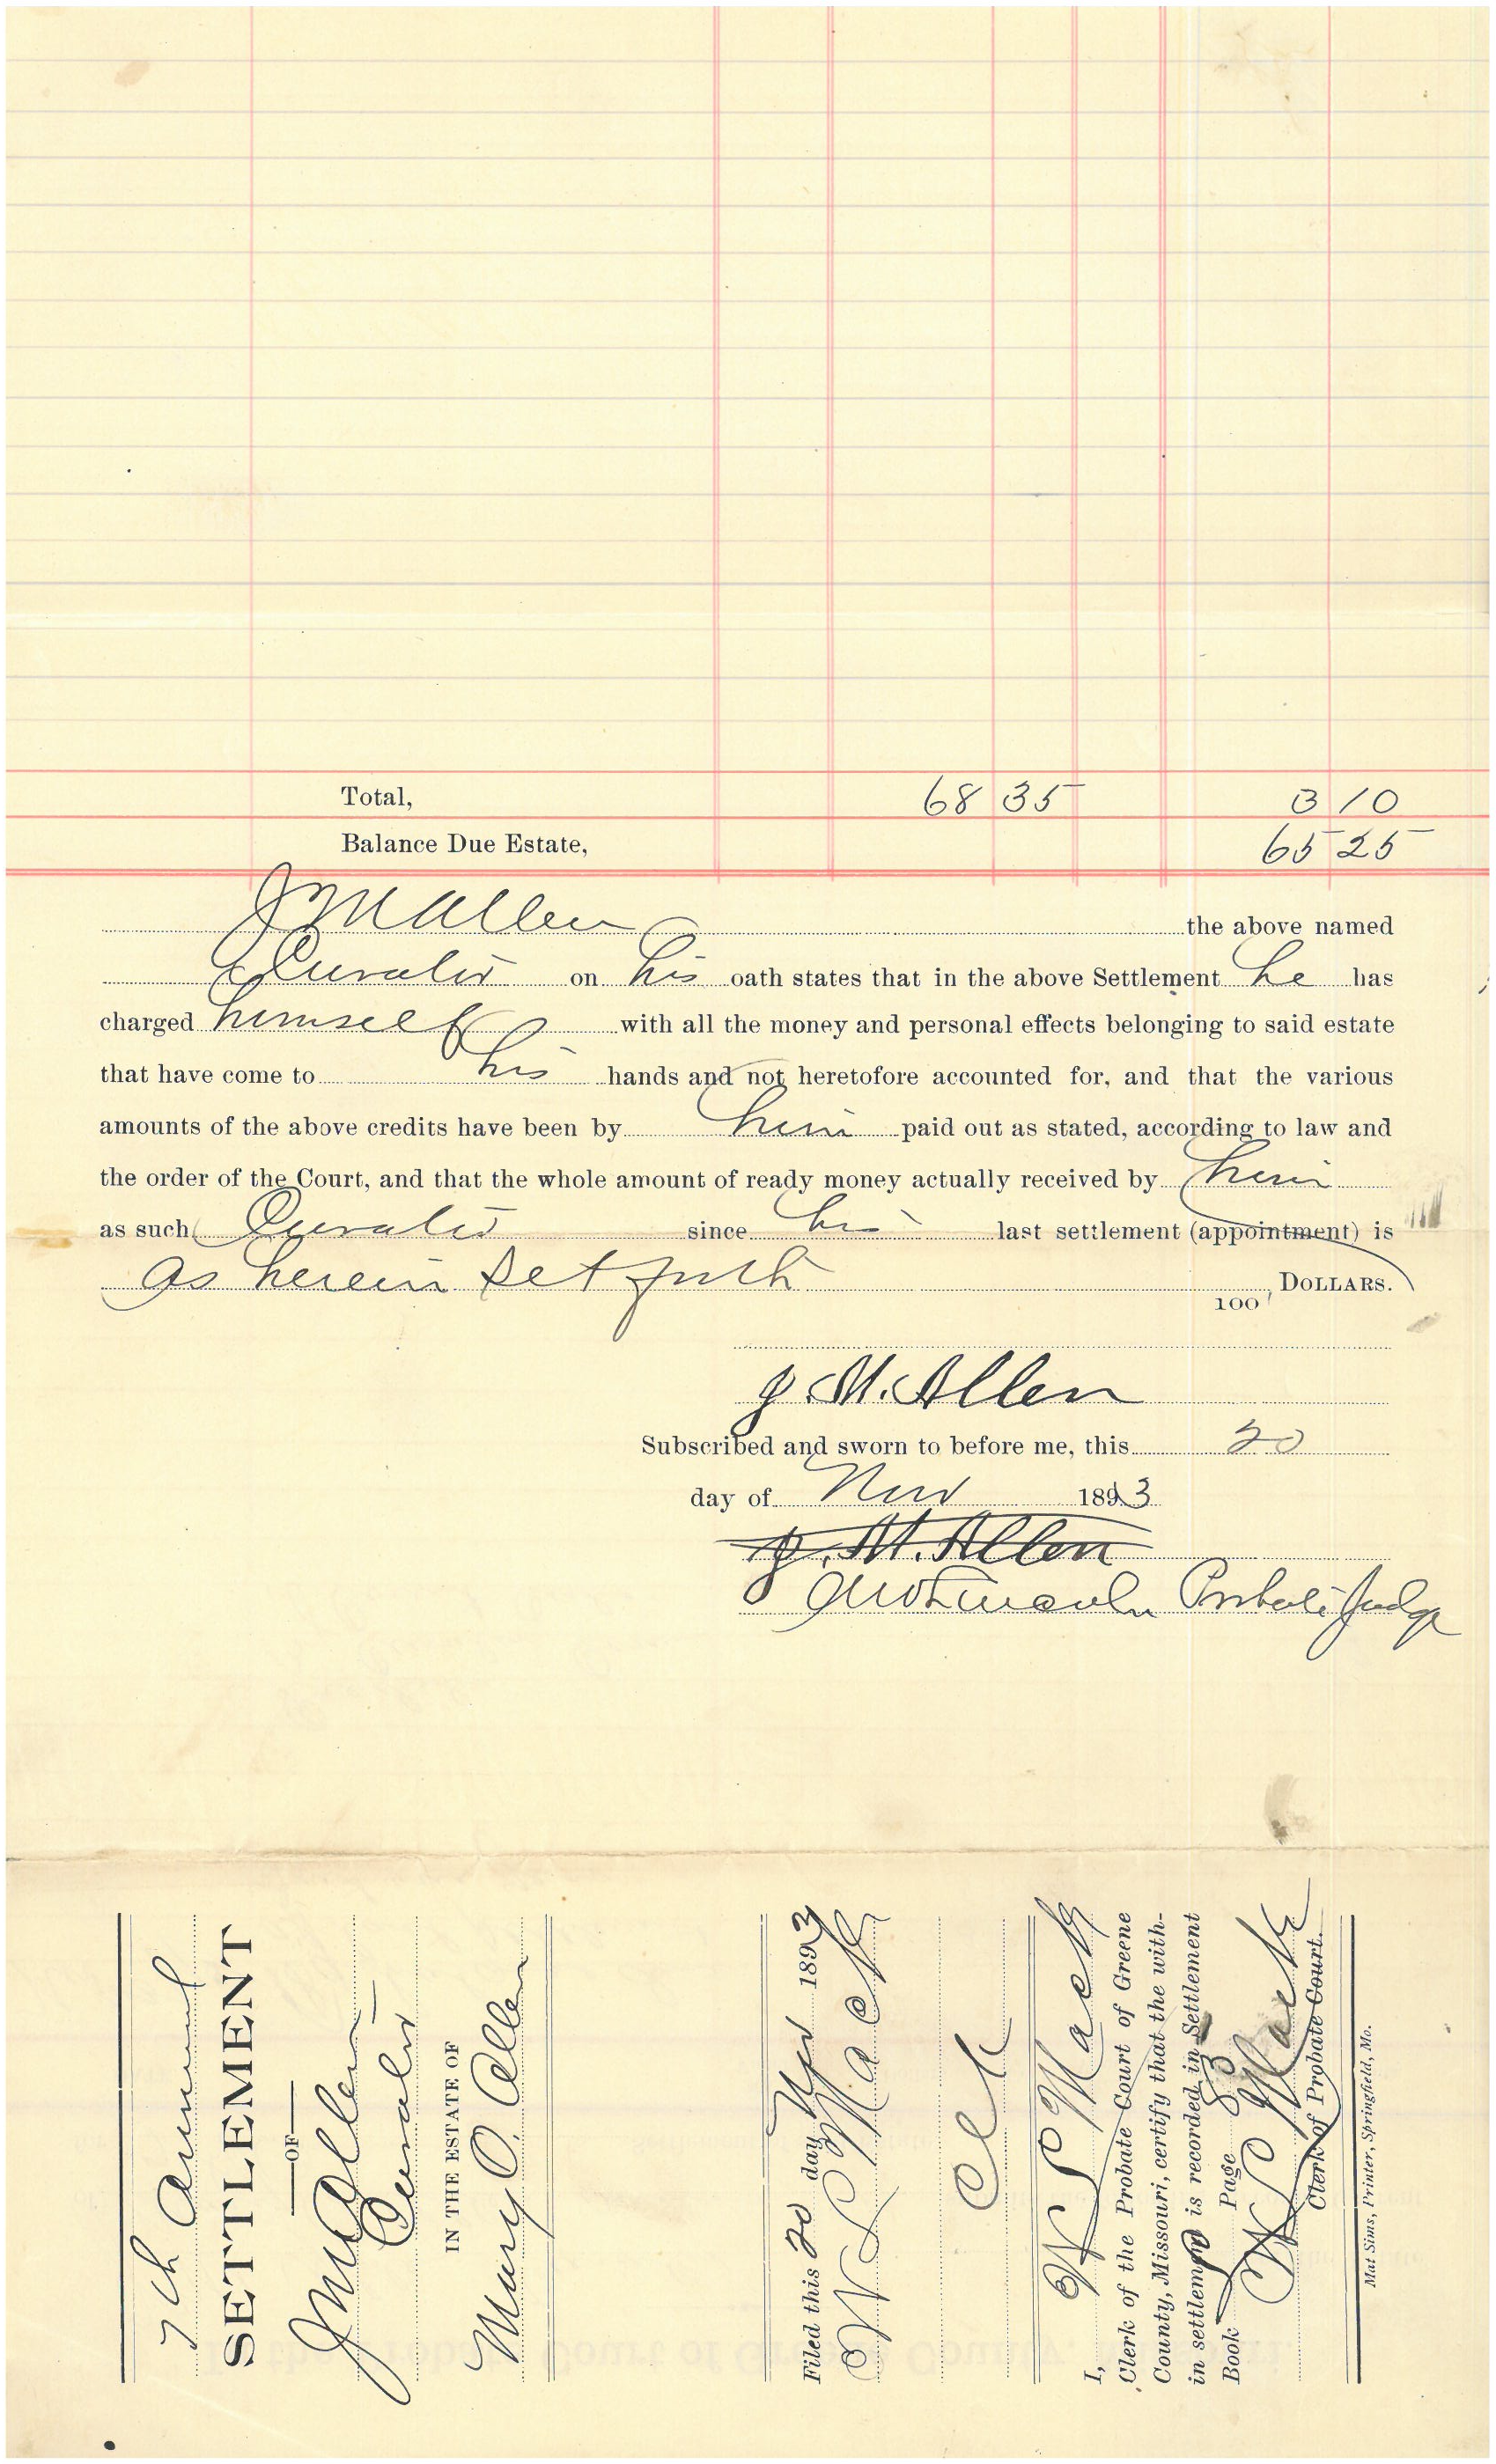 Total, 68 35 3 10
Balance Due Estate, 65 25
J M Allen the above named
Curator on his oath states that in the above Settlement he has
charged himself with all the money and personal effects belonging to said estate
that have come to his hands and not heretofore accounted for, and that the various
amounts of the above credits have been by him paid out as stated, according to law and
the order of the Court, and that the whole amount of ready money actually received by him
as such Curator since his last settlement (appointment) is
as herein set forth 100, DOLLARS.
J. M. Allen
Subscribed and sworn to before me, this 20
day of Nov 1893
J. M. Allen
Probate Judge
7th Annual
SETTLEMENT
OF
J M Allen
Curator
IN THE ESTATE OF
Mary O. Allen
Filed this 20 day Nov 1893
W L Mack
Clk
I, W L Mack
Clerk of the Probate Court of Greene
County, Missouri, certify that the with-
in settlement is recorded in Settlement
Book Page 83
W L Mack
Clerk of Probate Court.
Mat Sims, Printer, Springfield, Mo.